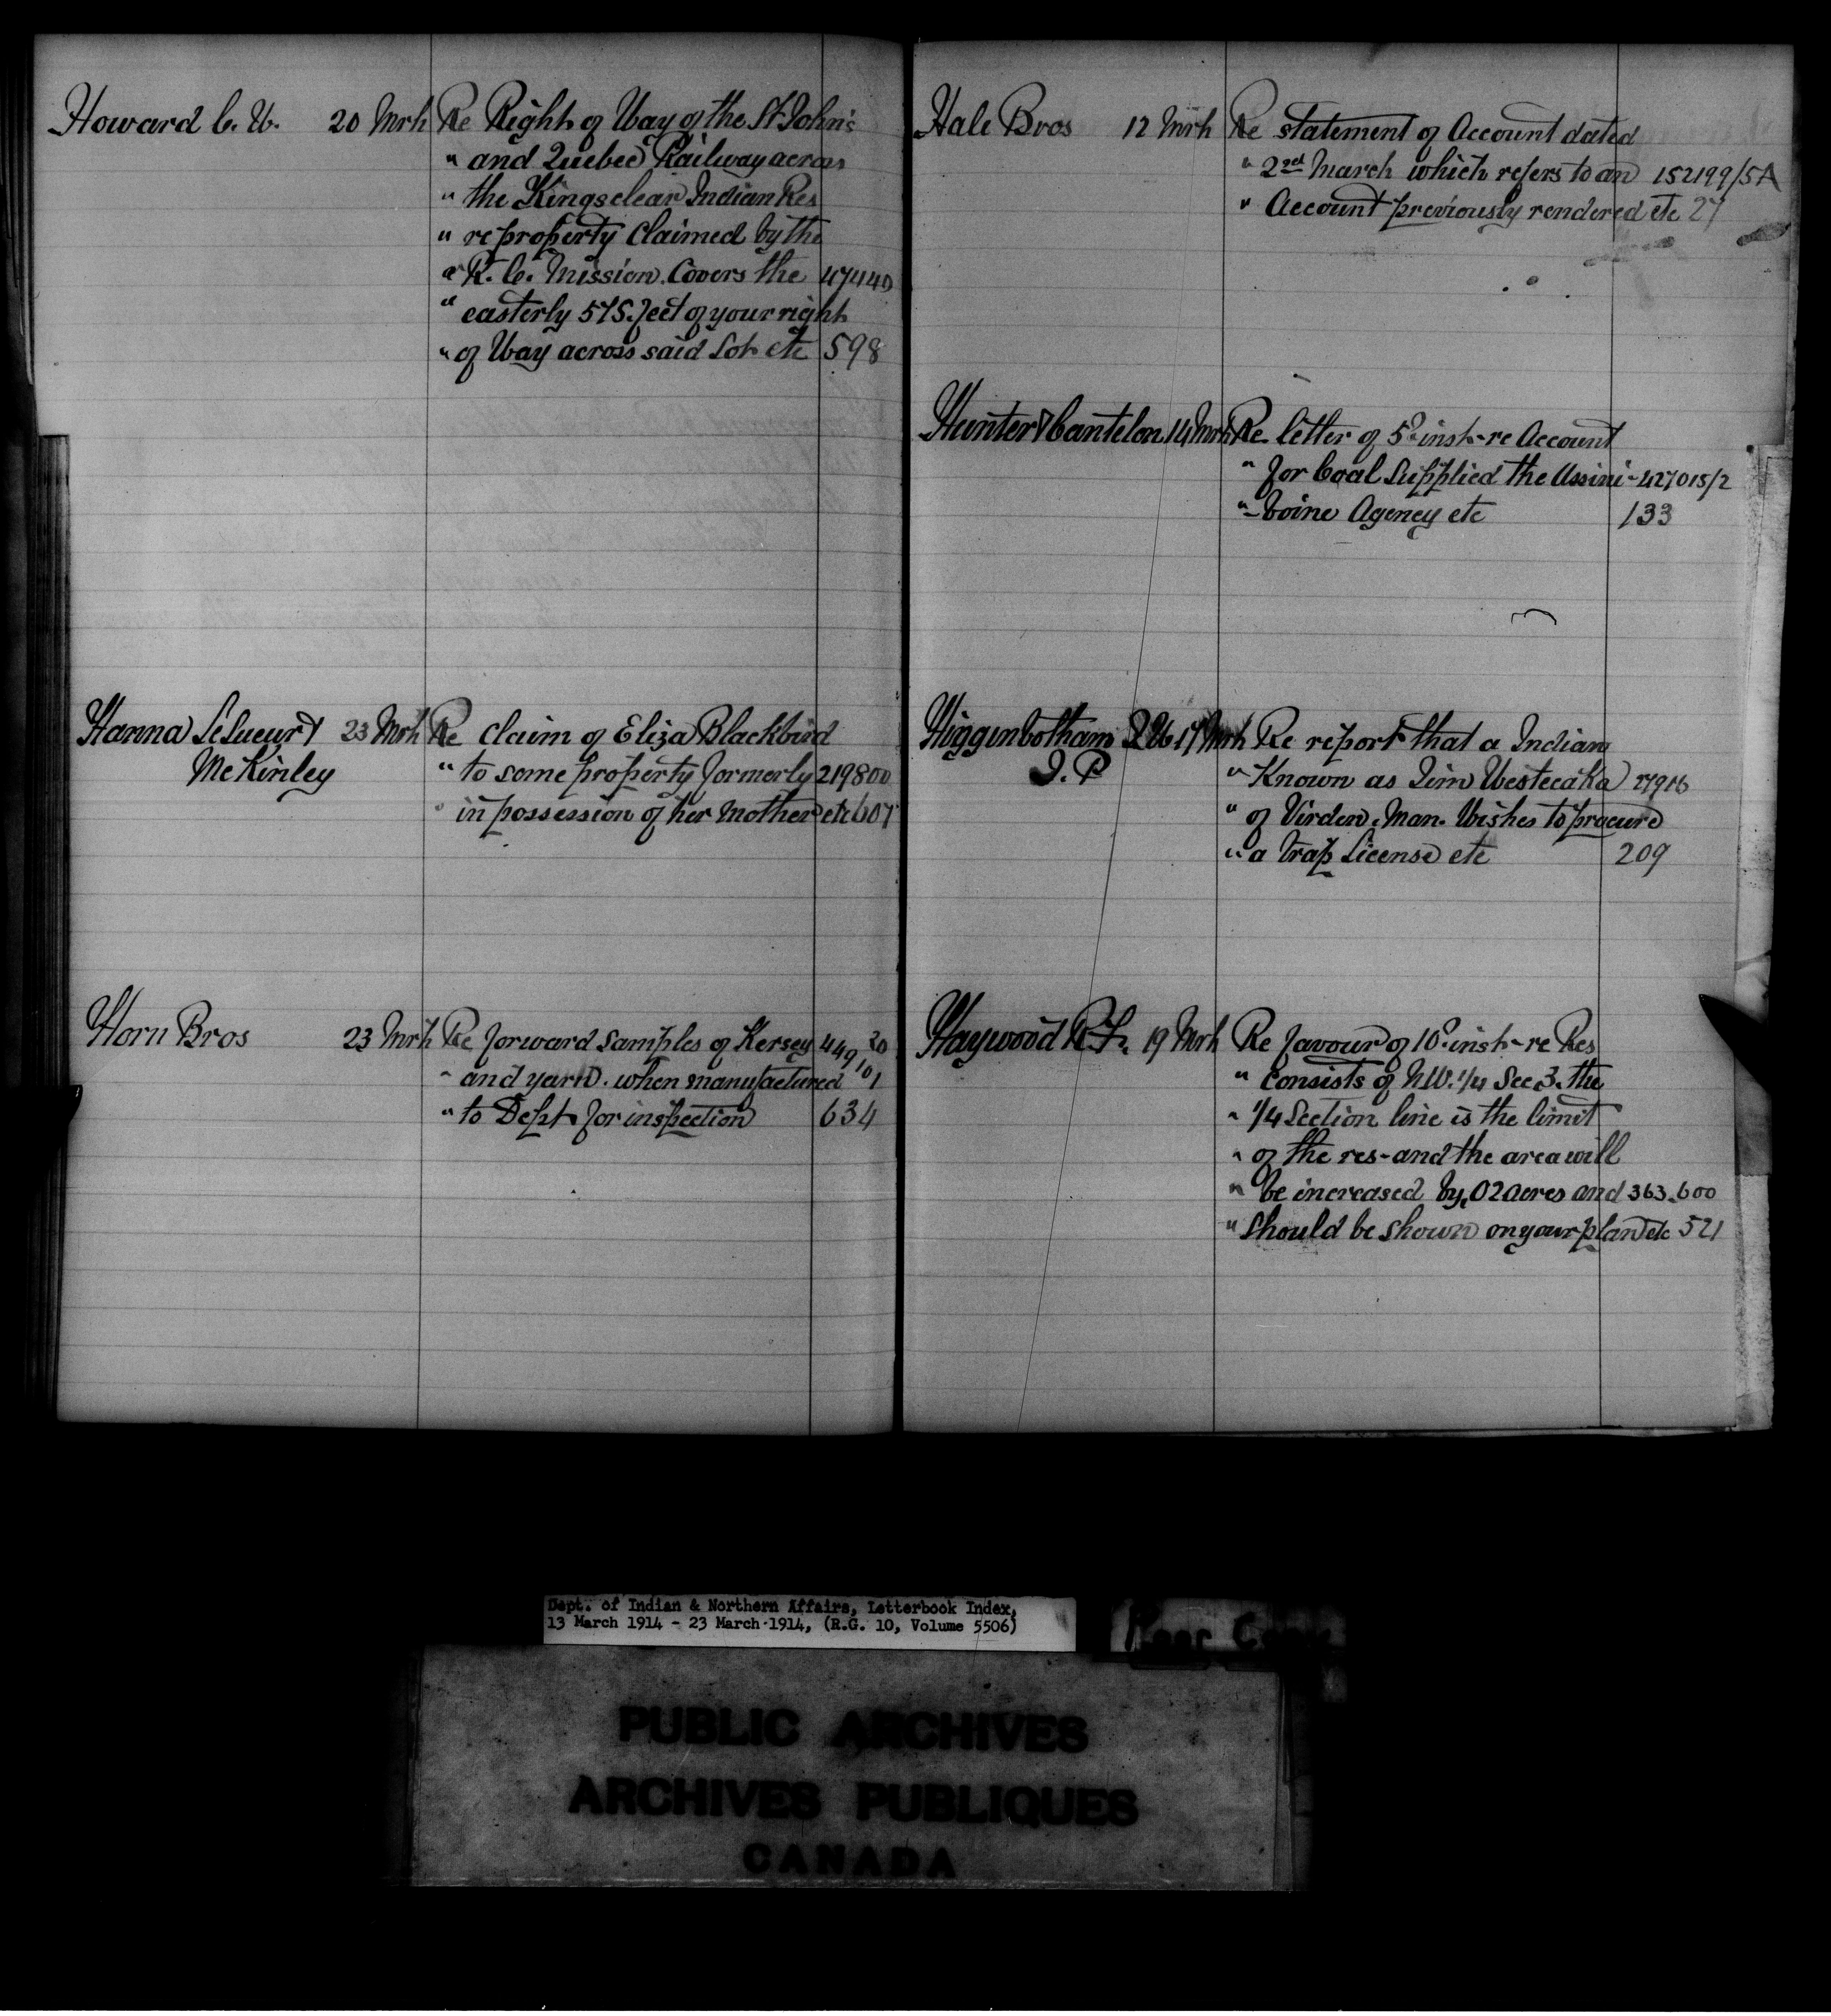 Howard C. W. 20 Mrh Re Right of Way of the St John's
" and Quebec Railway across
" the Kingsclear Indian Res
" re property Claimed by the
" R. C. Mission. Covers the 47440
" easterly 575. feet of your right
" of Way across said Lot etc 598
Hanna LeSueur & 23 Mrh Re claim of Eliza Blackbird
McKinley " to some property formerly 219800
" in possession of her Mother etc 607
Horn Bros 23 Mrh Re forward samples of Kersey 449101 20
" and yarn. when manufactured
" to Dept for inspection 634
Hale Bros 12 Mrh Re statement of Account dated
" 2nd March which refers to an 152199/5A
" Account previously rendered etc 27
Hunter & Cantelon 14 Mrh Re letter of 5th inst- re Account
" for Coal Supplied the Assini- 427015/2
" -boine Agency etc 133
Higgenbotham 17 Mrh Re report that a Indian
J. P " Known as Jim Westecaka
" of Virden, Man. Wishes to procure
" a trap License etc 209
Haywood R. F. 19 Mrh Re favour of 10th inst- re Res
" Consists of N.W. 1/4 Sec 3. the
" 1/4 Section line is the limit
" of the res- and the area will
" be increased by .02 acres and 363.600
" should be shown on your plan etc 521
Dept. of Indian & Northern Affairs, Letterbook Index,
13 March 1914 - 23 March 1914, (R.G. 10, Volume 5506)
Poor Copy
PUBLIC ARCHIVES
ARCHIVES PUBLIQUES
CANADA